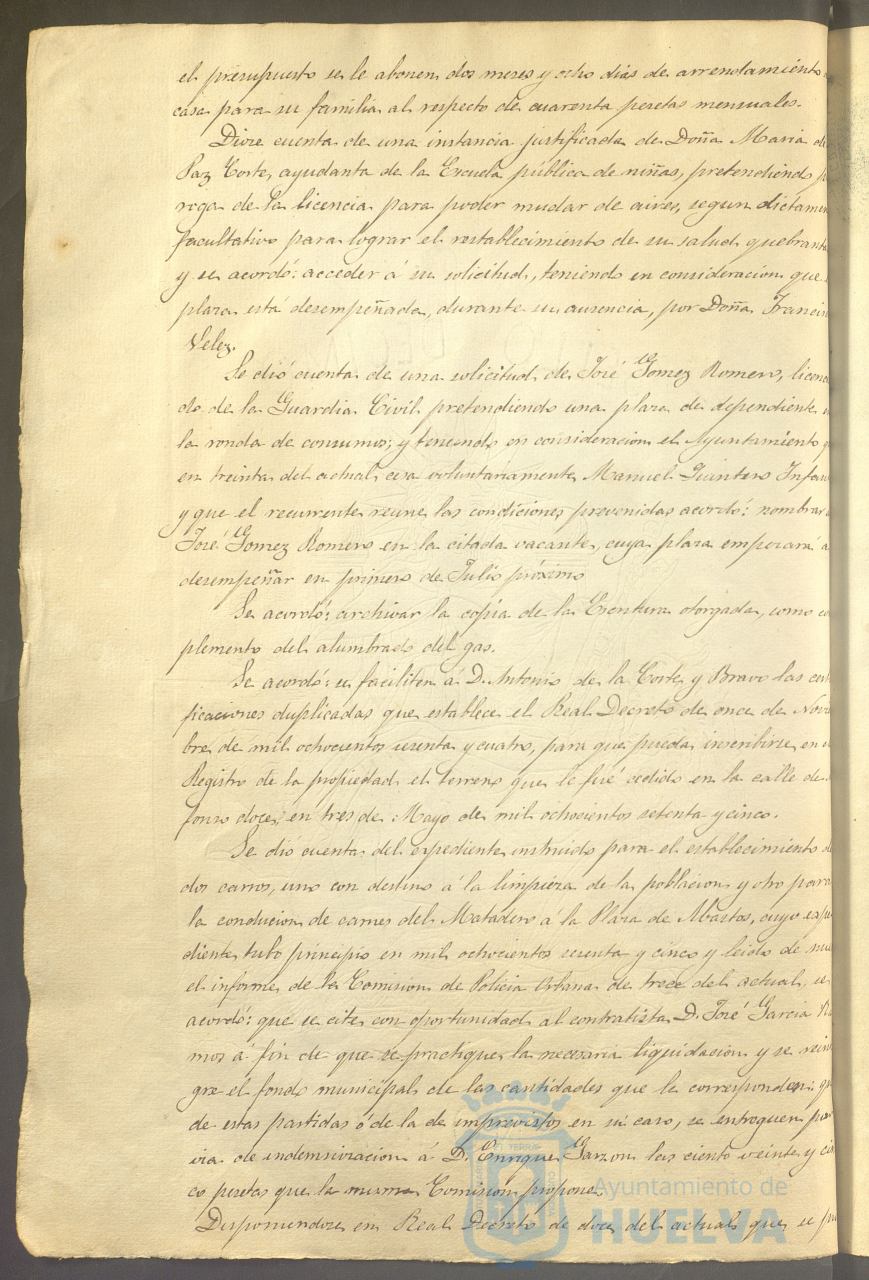 el presupuesto se le abonen dos meses y ocho dias de arrendamiento
casa para su familia al respecto de cuarenta pesetas mensuales.
Diose cuenta de una instancia justificada de Doña Maria de
Paz Corte, ayudanta de la Escuela pública de niñas, pretendiendo
roga de la licencia para poder mudar de aires, segun dictamen
facultativo para lograr el restablecimiento de su salud quebranta
y se acordó: acceder á su solicitud, teniendo en consideracion que
plaza está desempeñada, durante su ausencia, por Doña Francis
Velez.
Se dió cuenta de una solicitud de José Gomez Romero, licen
do de la Guardia Civil pretendiendo una plaza de dependiente
la ronda de consumos; y teniendo en consideracion el Ayuntamiento
en treinta del actual cesa voluntariamente Manuel Quintero Infan
y que el recurrente reune las condiciones prevenidas acordó: nombrar
José Gomez Romero en la citada vacante, cuya plaza empezará a
desempeñar en primero de Julio próximo
Se acordó: archivar la copia de la Escritura otorgada, como
plemento del alumbrado del gas.
Se acordó: se faciliten á D. Antonio de la Corte y Bravo las cer
ficaciones duplicadas que establece el Real Decreto de once de Nov
bre de mil ochocientos sesenta y cuatro, para que pueda inscribirse en
Registro de la propiedad el terreno que le fué cedido en la calle de
fonso doce, en tres de Mayo de mil ochocientos setenta y cinco.
Se dió cuenta del expediente instruido para el establecimiento
dos carros, uno con destino á la limpieza de la poblacion y otro para
la conducion de carnes del Matadero á la Plaza de Abastos, cuyo expe
diente tubo principio en mil ochocientos sesenta y cinco y leido de nue
el informe de la Comision de Policia Urbana de trece del actual, se
acordó: que se cite con oportunidad al contratista D. José Garcia Ra
mos á fin de que se practique la necesaria liquidacion y se rein
gre el fondo municipal de las cantidades que le corresponden:
de estas partidas ó de la de imprevistos en su caso, se entreguen por
via de indemnizacion á D. Enrique Garzon las ciento veinte y cin
co pesetas que la misma Comision propone.
Disponiendose en Real Decreto de doce del actual que se
Ayuntamiento de
HUELVA